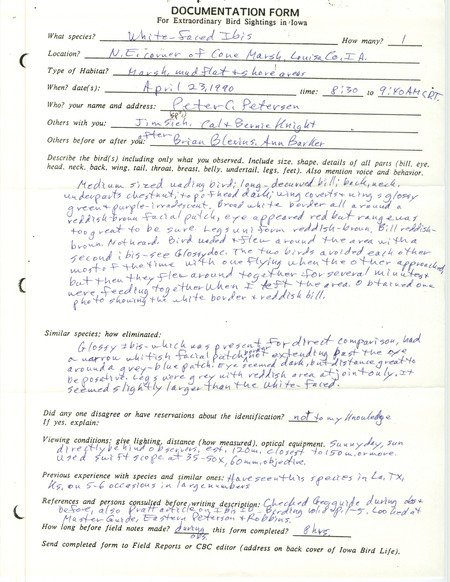 DOCUMENTATION FORM
For Extraordinary Bird Sightings in Iowa
What species? White-faced Ibis How many? 1
Location? N.E. corner of Cone Marsh, Louisa Co., IA.
Type of Habitat? Marsh, mud flat & shore areas
When? date(s): April 23, 1990 time: 8:30 to 9:40 AM CDT.
Who? your name and address: Peter C. Petersen
Others with you: Jim Cal & Bernie Knight
Others before or after you: after Brian Blevins, Ann Barker
Describe the bird(s) including only what you observed. Include size, shape, details of all parts (bill, eye,
head, neck, back, wing, tail, throat, breast, belly, undertail, legs, feet). Also mention voice and behavior.
Medium sized wading bird; long-decurved bill; back, neck,
underparts chestnut; top of head dark; wing coverts & wings glossy
green & purple-irradescent. Broad white border all around a
reddish-brown facial patch, eye appeared red but range was
too great to be sure. Legs uniform reddish-brown. Bill reddish-
brown. Not heard. Bird waded & flew around the area with a
second ibis-see Glossy doc. The two birds avoided each other
most of the time with one flying when the other approached,
but then they flew around together for several minutes &
were feeding together when I left the area. Obtained on a
photo showing the white border & reddish bill.
Similar species; how eliminated:
Glossy Ibis-which was present for direct comparison, had
a narrow whitish facial patch border not extending past the eye
around a grey-blue patch. Eye seemed dark, but distance great to
be positive. Legs were grey with reddish area at joint only. It
seemed slightly larger than the White-faced.
Did any one disagree or have reservations about the identification? not to my knowledge
If yes, explain:
Viewing conditions: give lighting, distance (how measured), optical equipment. Sunny day, sun
directly behind observers, est. 120m. closest to 150m. or more.
Used Swift scope at 35-50x, 60mm, objective.
Previous experience with species and similar ones: Have seen this species in La, TX,
Ks, on 5-6 occasions in large numbers
References and persons consulted before writing description: Checked Geog guide during obs &
before, also Pratt article on Ibis ID - Birding vol. 8 p. 1-5. Looked at
Master Guide, Eastern Peterson & Robbins.
How long before field notes made? during obs. this form completed? 8 hrs.
Send completed form to Field Reports or CBC editor (address on back cover of Iowa Bird Life).